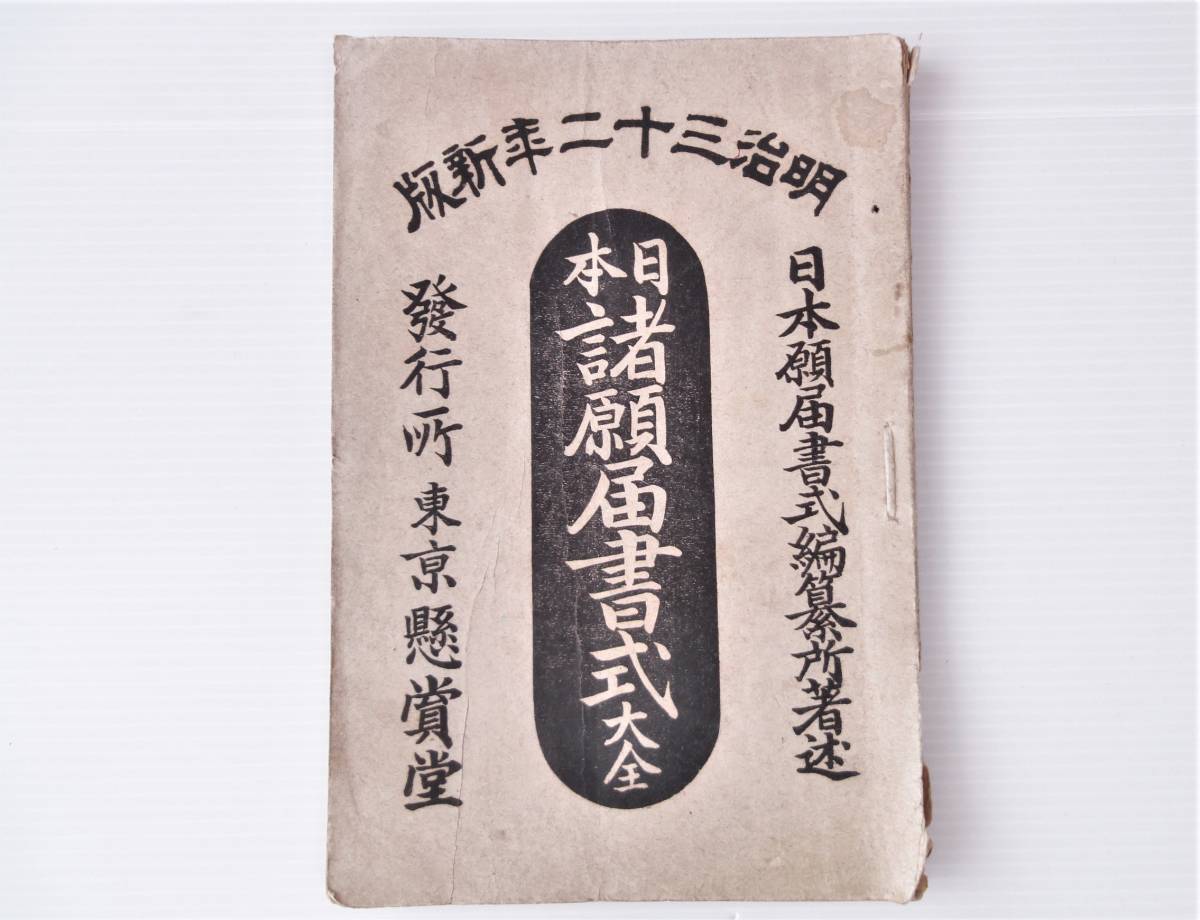 明治三十二年新版
日本願届書式編纂所著述
日本諸願届書式大全
發行所 東京懸賞堂